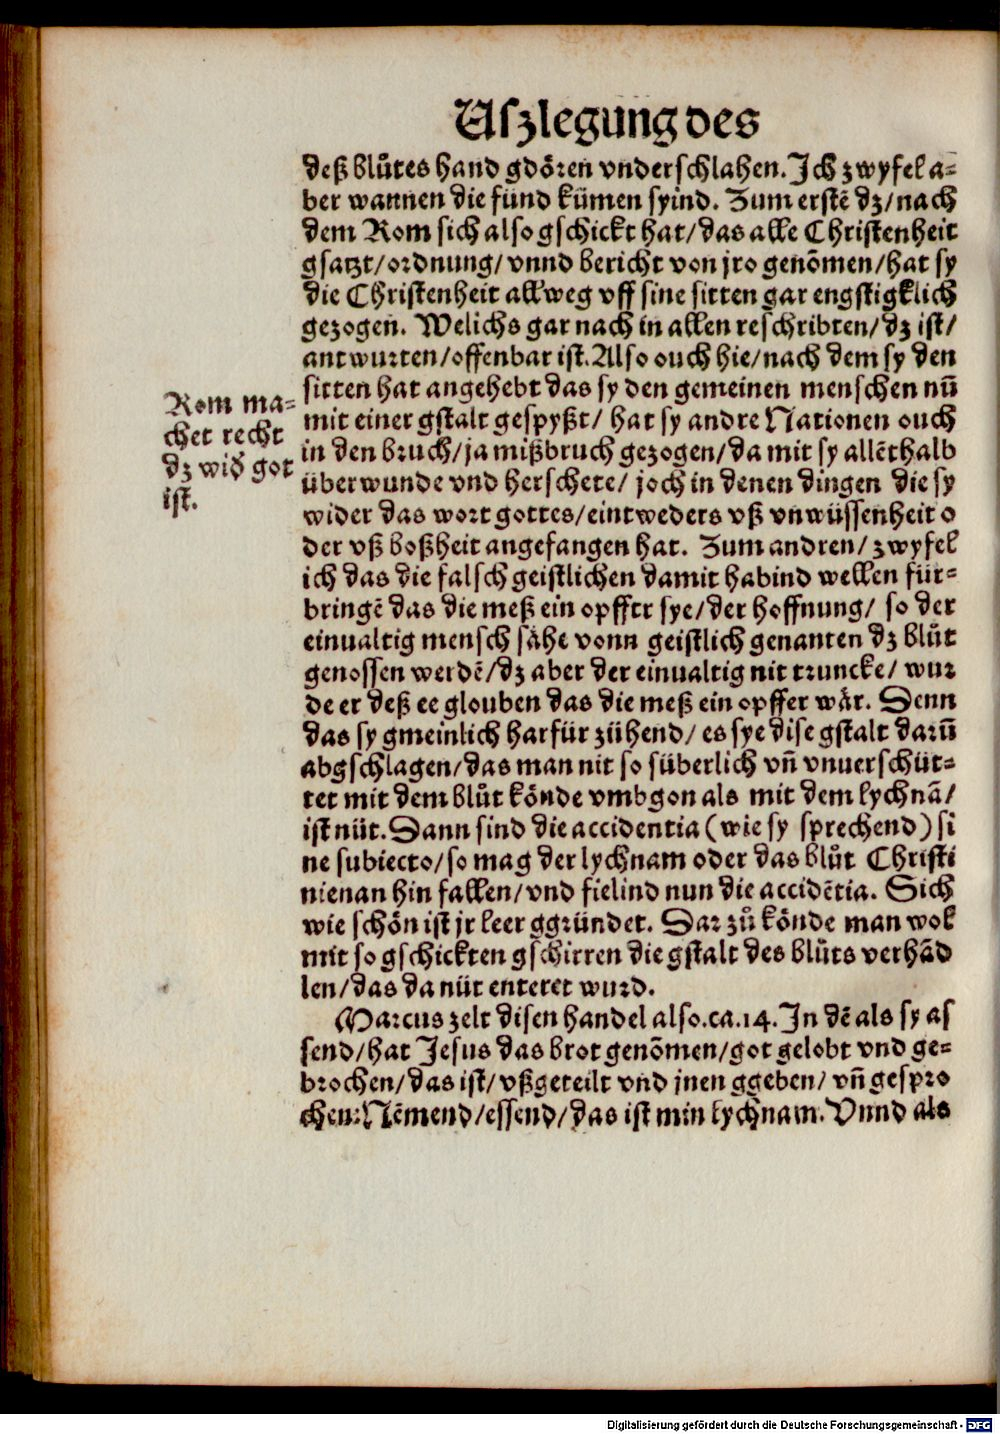 Uſzlegung des
deß blůtes hand gdören vnderschlahen. Ich zwyfel a-
ber wannen die fünd kümen syind. Zum erstē dz/nach
dem Rom sich also gschickt hat/das alle Christenheit
gsatzt/ordnung/vnnd bericht von jro genōmen/hat sy
die Christenheit allweg vff sine sitten gar engstigklich
gezogen. Welichs gar nach in allen reschribten/dz ist/
antwurten/offenbar ist. Also ouch hie/nach dem sy den
sitten hat angehebt das sy den gemeinen menschen nū
mit einer gstalt gespyßt/ hat sy andre Nationen ouch
in den bruch/ja mißbruch gezogen/da mit sy allēthalb
überwunde vnd herschete/ joch in denen dingen die sy
wider das wort gottes/eintweders vß vnwüssenheit o
der vß boßheit angefangen hat. Zum andren/ zwyfel
ich das die falsch geistlichen damit habind wellen für-
bringē das die meß ein opffer sye/der hoffnung/ so der
einualtig mensch sähe vonn geistlich genanten dz blůt
genossen werdē/dz aber der einualtig nit truncke/ wur
de er deß ee glouben das die meß ein opffer wär. Denn
das sy gmeinlich harfür zühend/ es sye dise gstalt darū
abgschlagen/das man nit so süberlich vn̄ vnuerschüt-
tet mit dem blůt könde vmbgon als mit dem lychnā/
ist nüt. Dann sind die accidentia (wie sy sprechend) si
ne subiecto/so mag der lychnam oder das blůt Christi
nienan hin fallen/vnd fielind nun die accidētia. Sich
wie schön ist jr leer ggründet. Dar zů könde man wol
mit so gschickten gschirren die gstalt des blůts verhād
len/das da nüt enteret wurd.
Marcus zelt disen handel also.ca.14. In dē als sy as
send/hat Jesus das brot genōmen/got gelobt vnd ge-
brochen/das ist/vßgeteilt vnd jnen ggeben/ vn̄ gespro
chen: Nēmend/essend/das ist min lychnam. Vnnd als
Rom ma-
chet recht
dz wid̓ got
ist.
Digitalisierung gefördert durch die Deutsche Forschungsgemeinschaft - DFG